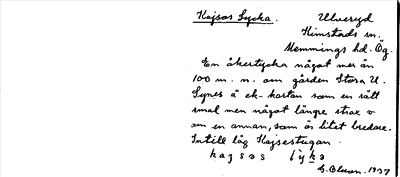 Kajsas Lycka. Ulveryd
Rinstads sn.
Memmings hd. Ög.
En åkerlycka något mer än
100 m. n. om gården Stora U.
Synes å ek-kartan som en rätt
smal men något längre strax v
om en annan, som är litet bredare.
Intill låg Kajsestugan.
kaʒsas lyka
G. Olson. 1937